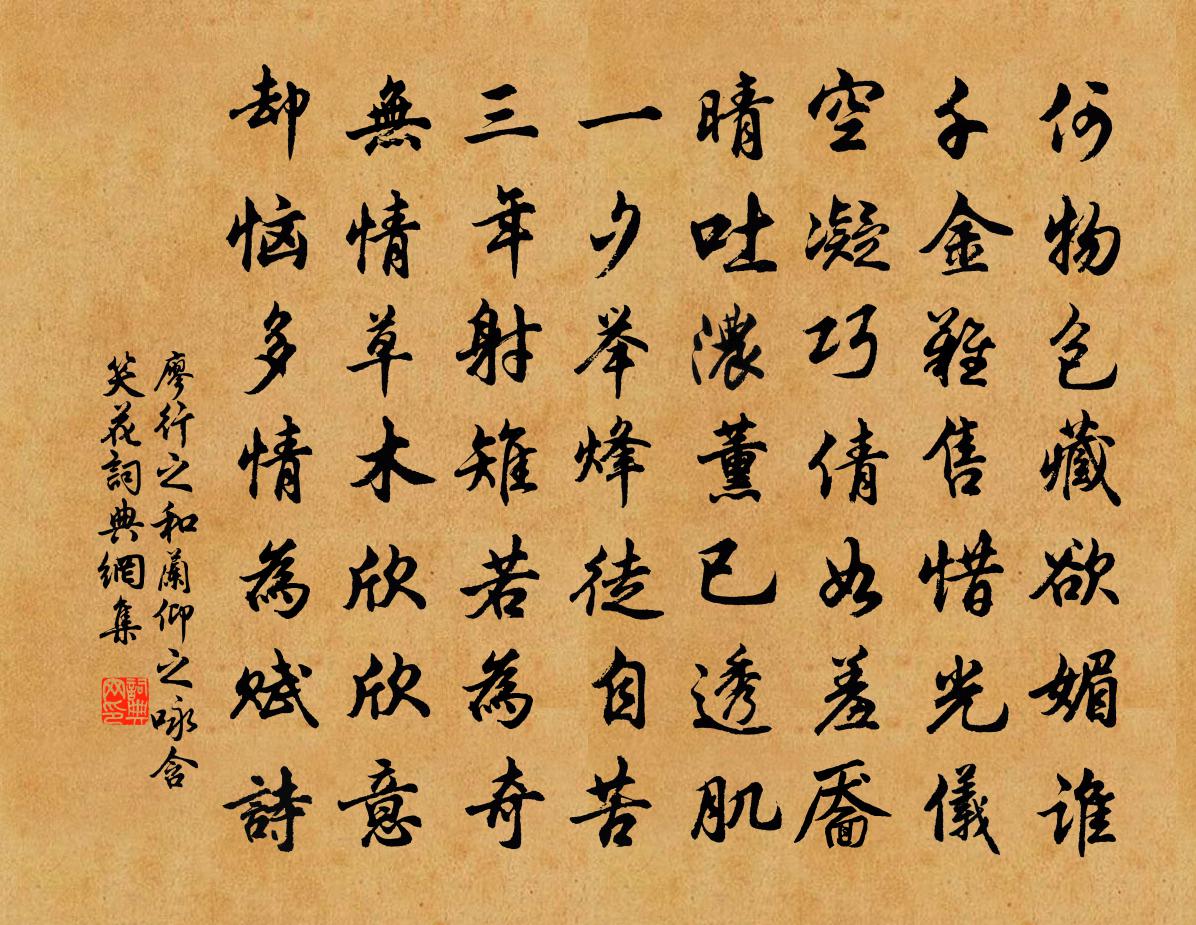 何物包藏欲媚谁
千金難售惜光儀
空凝巧倩如羞靨
晴吐濃薰已透肌
一夕举烽徒自苦
三年射雉若為奇
無情草木欣欣意
却恼多情為赋詩
廖行之和蘭仰之咏含
笑花詞典網集
詞典
网印